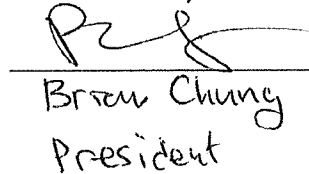 Brian Chung
President